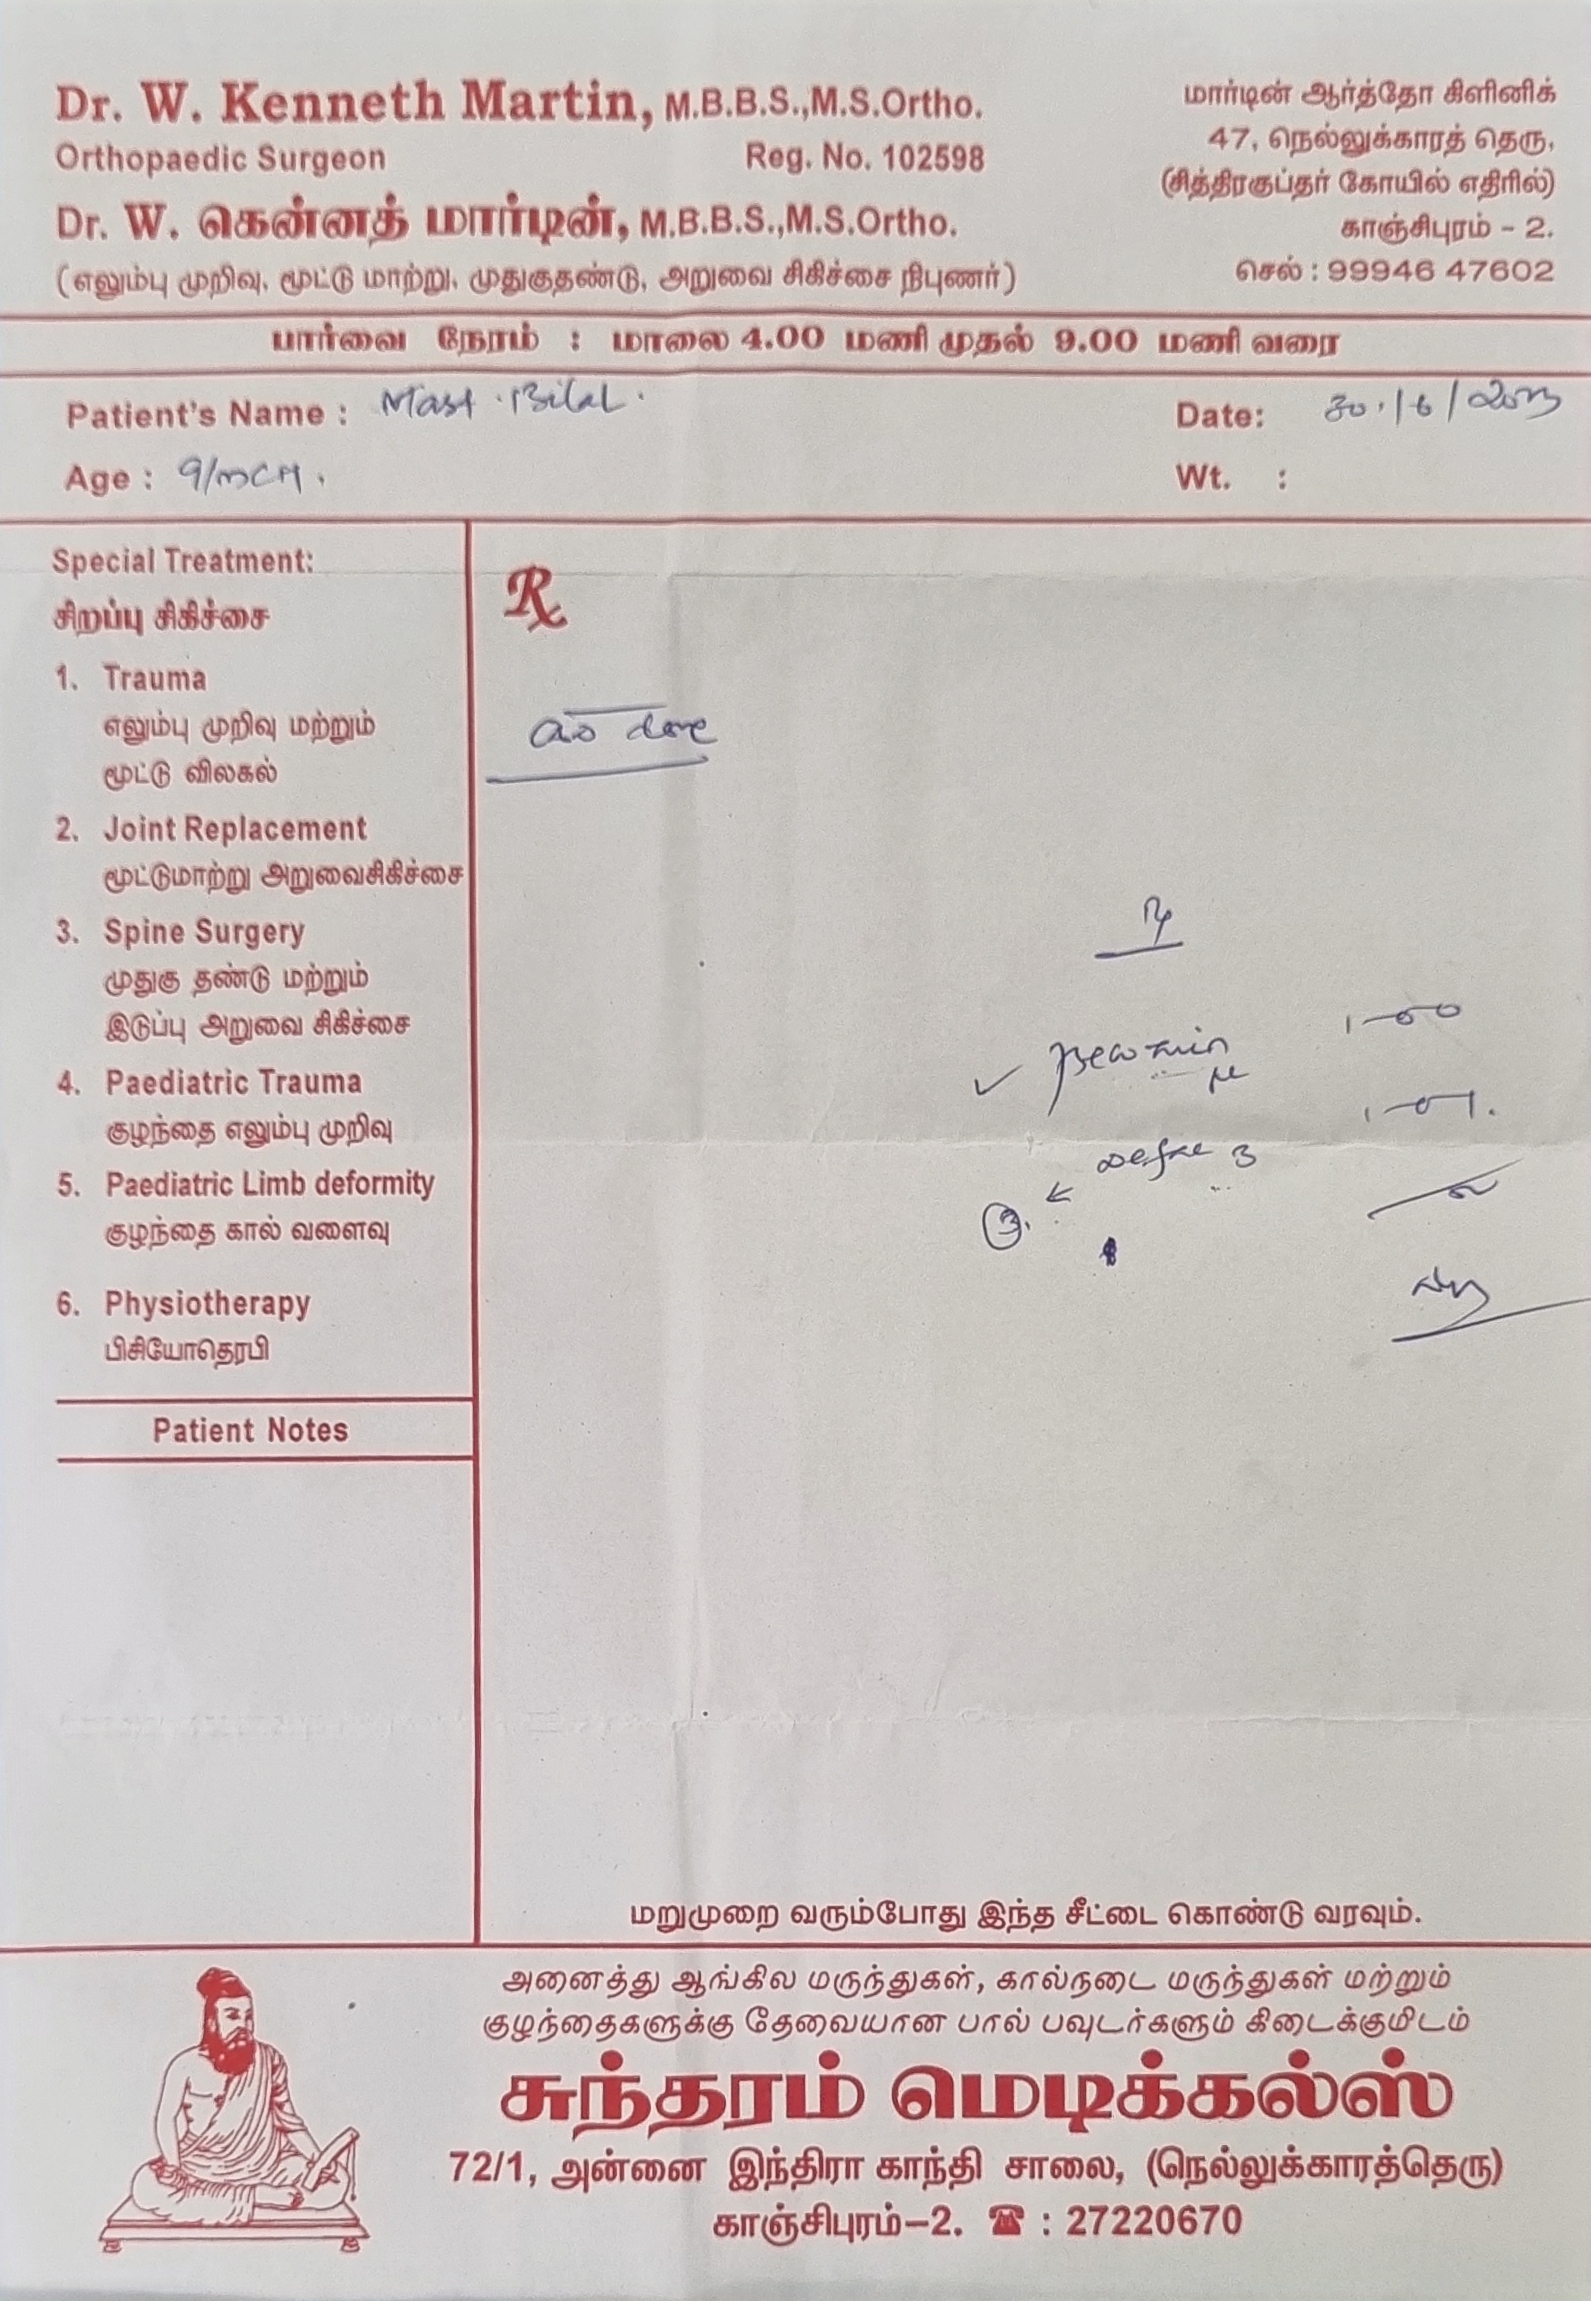 Dr. W. Kenneth Martin, M.B.B.S.,M.S.Ortho.
Orthopaedic Surgeon Reg. No. 102598
Dr. W. கென்னத் மார்டின், M.B.B.S.,M.S.Ortho.
(எலும்பு முறிவு, மூட்டு மாற்று, முதுகுதண்டு, அறுவை சிகிச்சை நிபுணர்)
மார்டின் ஆர்த்தோ கிளினிக்
47, நெல்லுக்காரத் தெரு,
(சித்திரகுப்தர் கோயில் எதிரில்)
காஞ்சிபுரம் - 2.
செல் : 99946 47602
பார்வை நேரம் : மாலை 4.00 மணி முதல் 9.00 மணி வரை
Patient's Name : Mast. Bilal. Date: 30/6/
Age : 9/mch. Wt. :
Special Treatment:
சிறப்பு சிகிச்சை
1. Trauma
எலும்பு முறிவு மற்றும்
மூட்டு விலகல்
2. Joint Replacement
மூட்டுமாற்று அறுவைசிகிச்சை
3. Spine Surgery
முதுகு தண்டு மற்றும்
இடுப்பு அறுவை சிகிச்சை
4. Paediatric Trauma
குழந்தை எலும்பு முறிவு
5. Paediatric Limb deformity
குழந்தை கால் வளைவு
6. Physiotherapy
பிசியோதெரபி
Patient Notes
Rx
done
1-0-0
1-0-1.
3
மறுமுறை வரும்போது இந்த சீட்டை கொண்டு வரவும்.
அனைத்து ஆங்கில மருந்துகள், கால்நடை மருந்துகள் மற்றும்
குழந்தைகளுக்கு தேவையான பால் பவுடர்களும் கிடைக்குமிடம்
சுந்தரம் மெடிக்கல்ஸ்
72/1, அன்னை இந்திரா காந்தி சாலை, (நெல்லுக்காரத்தெரு)
காஞ்சிபுரம்-2. ☎ : 27220670